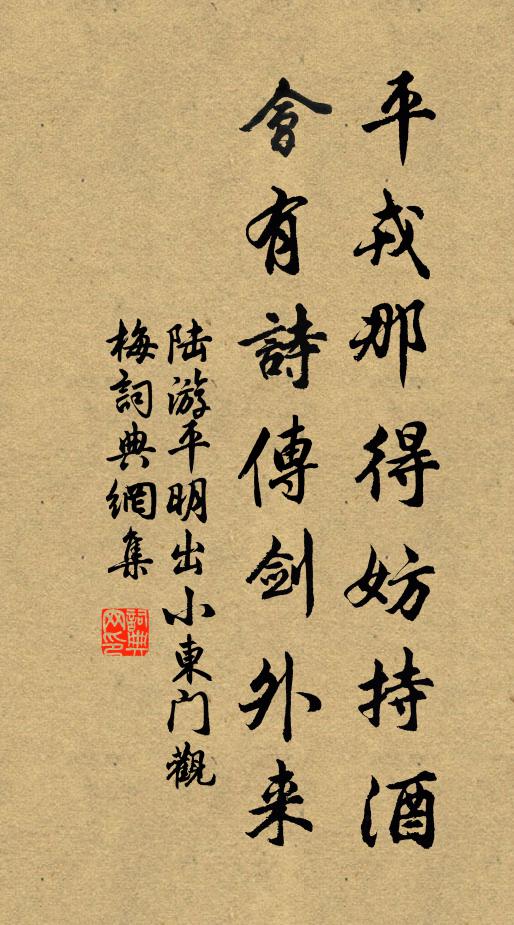 平戎那得妨持酒
會有詩傳剑外来
陆游平明出小東门觀
梅詞典網集
詞典网印